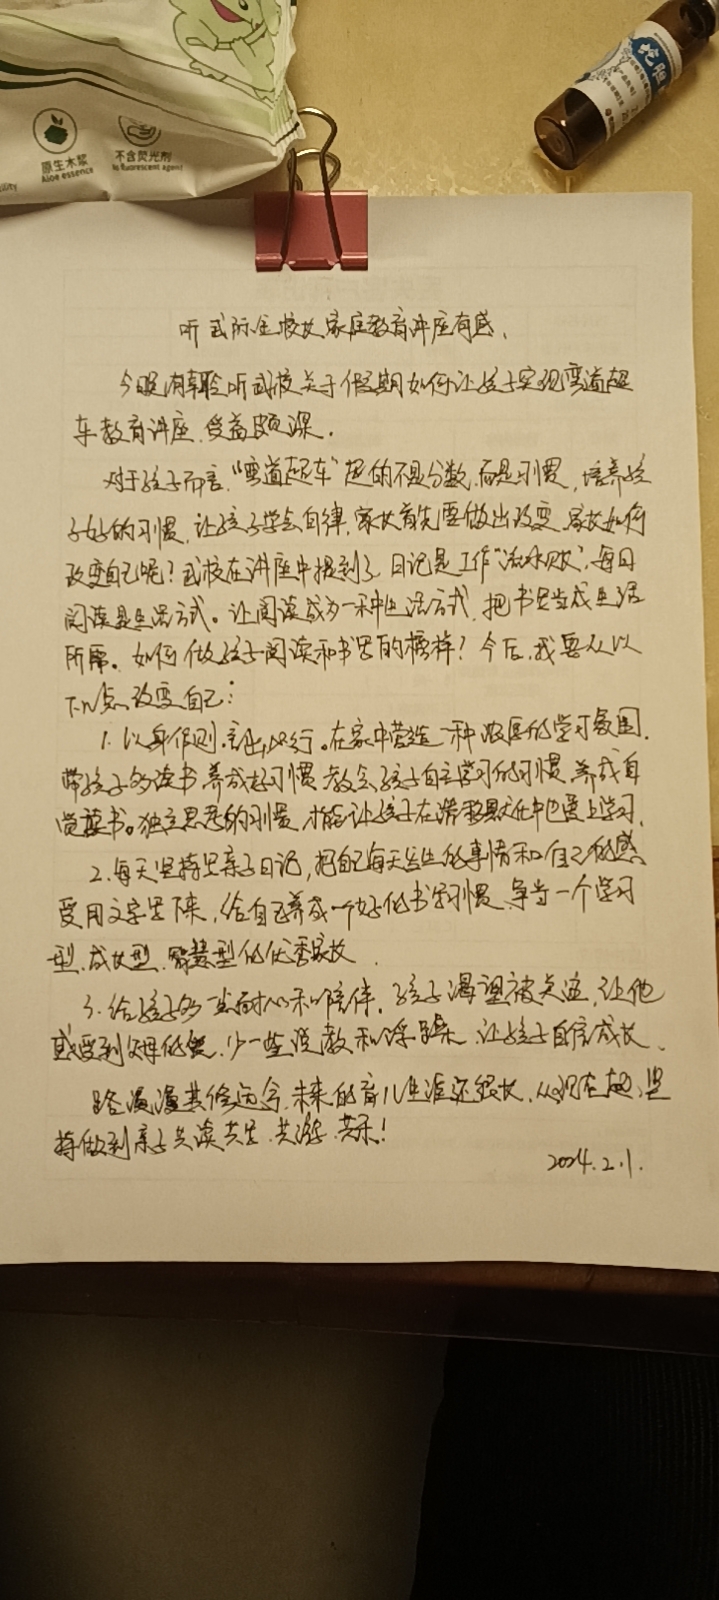 原生木浆
Aloe essence
不含荧光剂
No fluorescent agent
蛇胆
听武际金校长家庭教育讲座有感、
今晚有幸聆听武校关于假期如何让孩子实现弯道超
车教育讲座、受益颇深.
对于孩子而言,“弯道超车”超的不是分数,而是习惯,培养孩
子好的习惯,让孩子学会自律,家长首先要做出改变、家长如何
改变自己呢?武校在讲座中提到了,日记是工作“流水账”,每日
阅读是生活方式。让阅读成为一种生活方式,把书写当成生活
所需。如何做孩子阅读和书写的榜样?今后,我要从以
下几点改变自己:
1.以身作则,言出必行。在家中营造一种浓厚的学习氛围.
带孩子多读书养成好习惯、教会孩子自主学习的习惯、养成自
觉读书。独立思考的习惯,才能让孩子在潜移默化中也爱上学习.
2.每天坚持写亲子日记,把自己每天发生的事情和自己的感
受用文字写下来,给自己养成一个好的书写习惯、争当一个学习
型、成长型、智慧型的优秀家长.
3.给孩子多一些耐心和陪伴,孩子渴望被关注,让他
感受到父母的爱,少一些说教和浮躁,让孩子自信成长、
路漫漫其修远兮,未来的育儿生涯还很长,从现在起,坚
持做到亲子共读共写、共游、共乐!
2024.2.1.